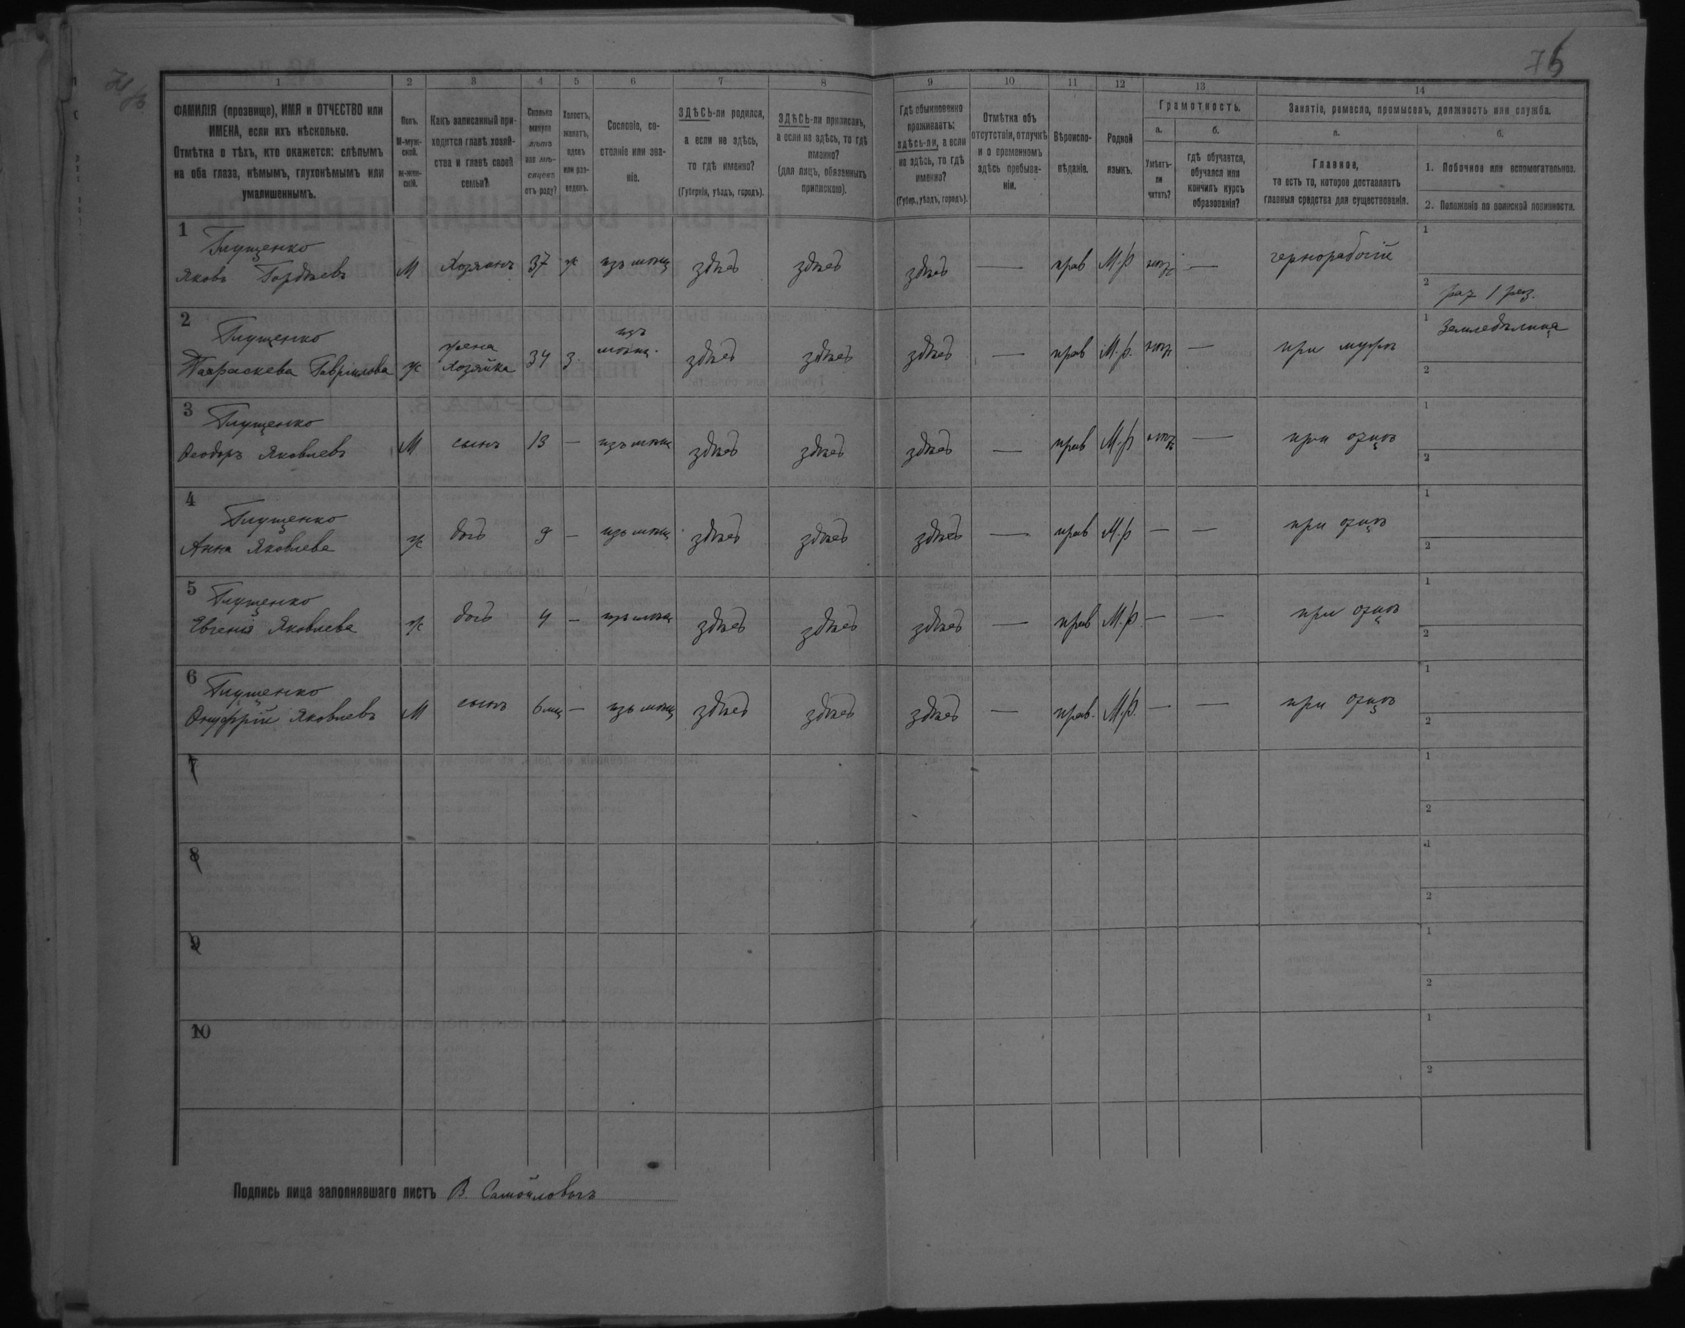 75
1 2 3 4 5 6 7 8 9 10 11 12 13 14
ФАМИЛІЯ (прозвище), ИМЯ и ОТЧЕСТВО или
ИМЕНА, если ихъ нѣсколько.
Отмѣтка о тѣхъ, кто окажется: слѣпымъ
на оба глаза, нѣмымъ, глухонѣмымъ или
умалишеннымъ.
Полъ.
М-муж-
ской.
ж-жен-
скій.
Какъ записанный при-
ходится главѣ хозяй-
ства и главѣ своей
семьи?
Сколько
минуло
лѣтъ
или мѣ-
сяцевъ
отъ роду?
Холостъ,
женатъ,
вдовъ
или раз-
веденъ.
Сословіе, со-
стояніе или зва-
ніе.
ЗДѢСЬ-ли родился,
а если не здѣсь,
то гдѣ именно?
(Губернія, уѣздъ, городъ).
ЗДѢСЬ-ли приписанъ,
а если не здѣсь, то гдѣ
именно?
(для лицъ, обязанныхъ
припискою).
Гдѣ обыкновенно
проживаетъ:
здѣсь-ли, а если
не здѣсь, то гдѣ
именно?
(Губер., уѣздъ, городъ).
Отмѣтка объ
отсутствіи, отлучкѣ
и о временномъ
здѣсь пребыва-
ніи.
Вѣроиспо-
вѣданіе.
Родной
языкъ.
Грамотность.
а.
Умѣетъ-
ли
читать?
б.
гдѣ обучается,
обучался или
кончилъ курсъ
образованія?
Занятіе, ремесло, промыселъ, должность или служба.
а.
Главное,
то есть то, которое доставляетъ
главныя средства для существованія.
б.
1. Побочное или вспомогательное.
2. Положеніе по воинской повинности.
1 Глущенко
Яковъ Гордѣевъ М Хозяинъ 37 ж изъ мѣщ здѣсь здѣсь здѣсь — прав М.р нѣтъ — чернорабочій 1
2
2 Глущенко
Параскева Гаврилова ж жена хозяйка 34 з. изъ мѣщ. здѣсь здѣсь здѣсь — прав М.р. нѣтъ — при мужѣ 1 Земледѣлица
2
3 Глущенко
Ѳеодоръ Яковлевъ М сынъ 13 — изъ мѣщ здѣсь здѣсь здѣсь — прав М.р нѣтъ — при отцѣ 1
2
4 Глущенко
Анна Яковлева ж дочь 9 — изъ мѣщ здѣсь здѣсь здѣсь — прав М.р — — при отцѣ 1
2
5 Глущенко
Евгенія Яковлева ж дочь 4 — изъ мѣщ здѣсь здѣсь здѣсь — прав М.р. — — при отцѣ 1
2
6 Глущенко
Онуфрій Яковлевъ М сынъ 6 мѣ — изъ мѣщ здѣсь здѣсь здѣсь — прав. М.р. — — при отцѣ 1
2
7 1
2
8 1
2
9 1
2
10 1
2
Подпись лица заполнявшаго листъ В. Самойловичъ